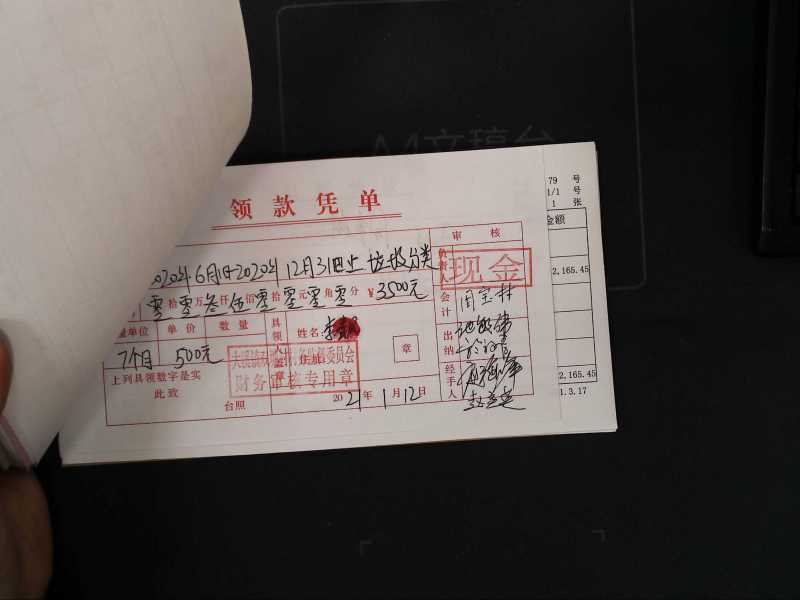 A4文稿台
79 号
1/1 号
1 张
金额
2,165.45
2,165.45
1.3.17
领款凭单
审核
2020年6月1日-2020年12月31日止 垃圾分类
负责人
现金
零拾零万叁仟伍佰零拾零元零角零分 ¥3500元
会计
周宝林
单位 单价 数量
具领人盖章
姓名
住址
章
出纳
7个月 500元
财务审核专用章
经手人
上列具领数字是实
此致
台照
2021年1月12日